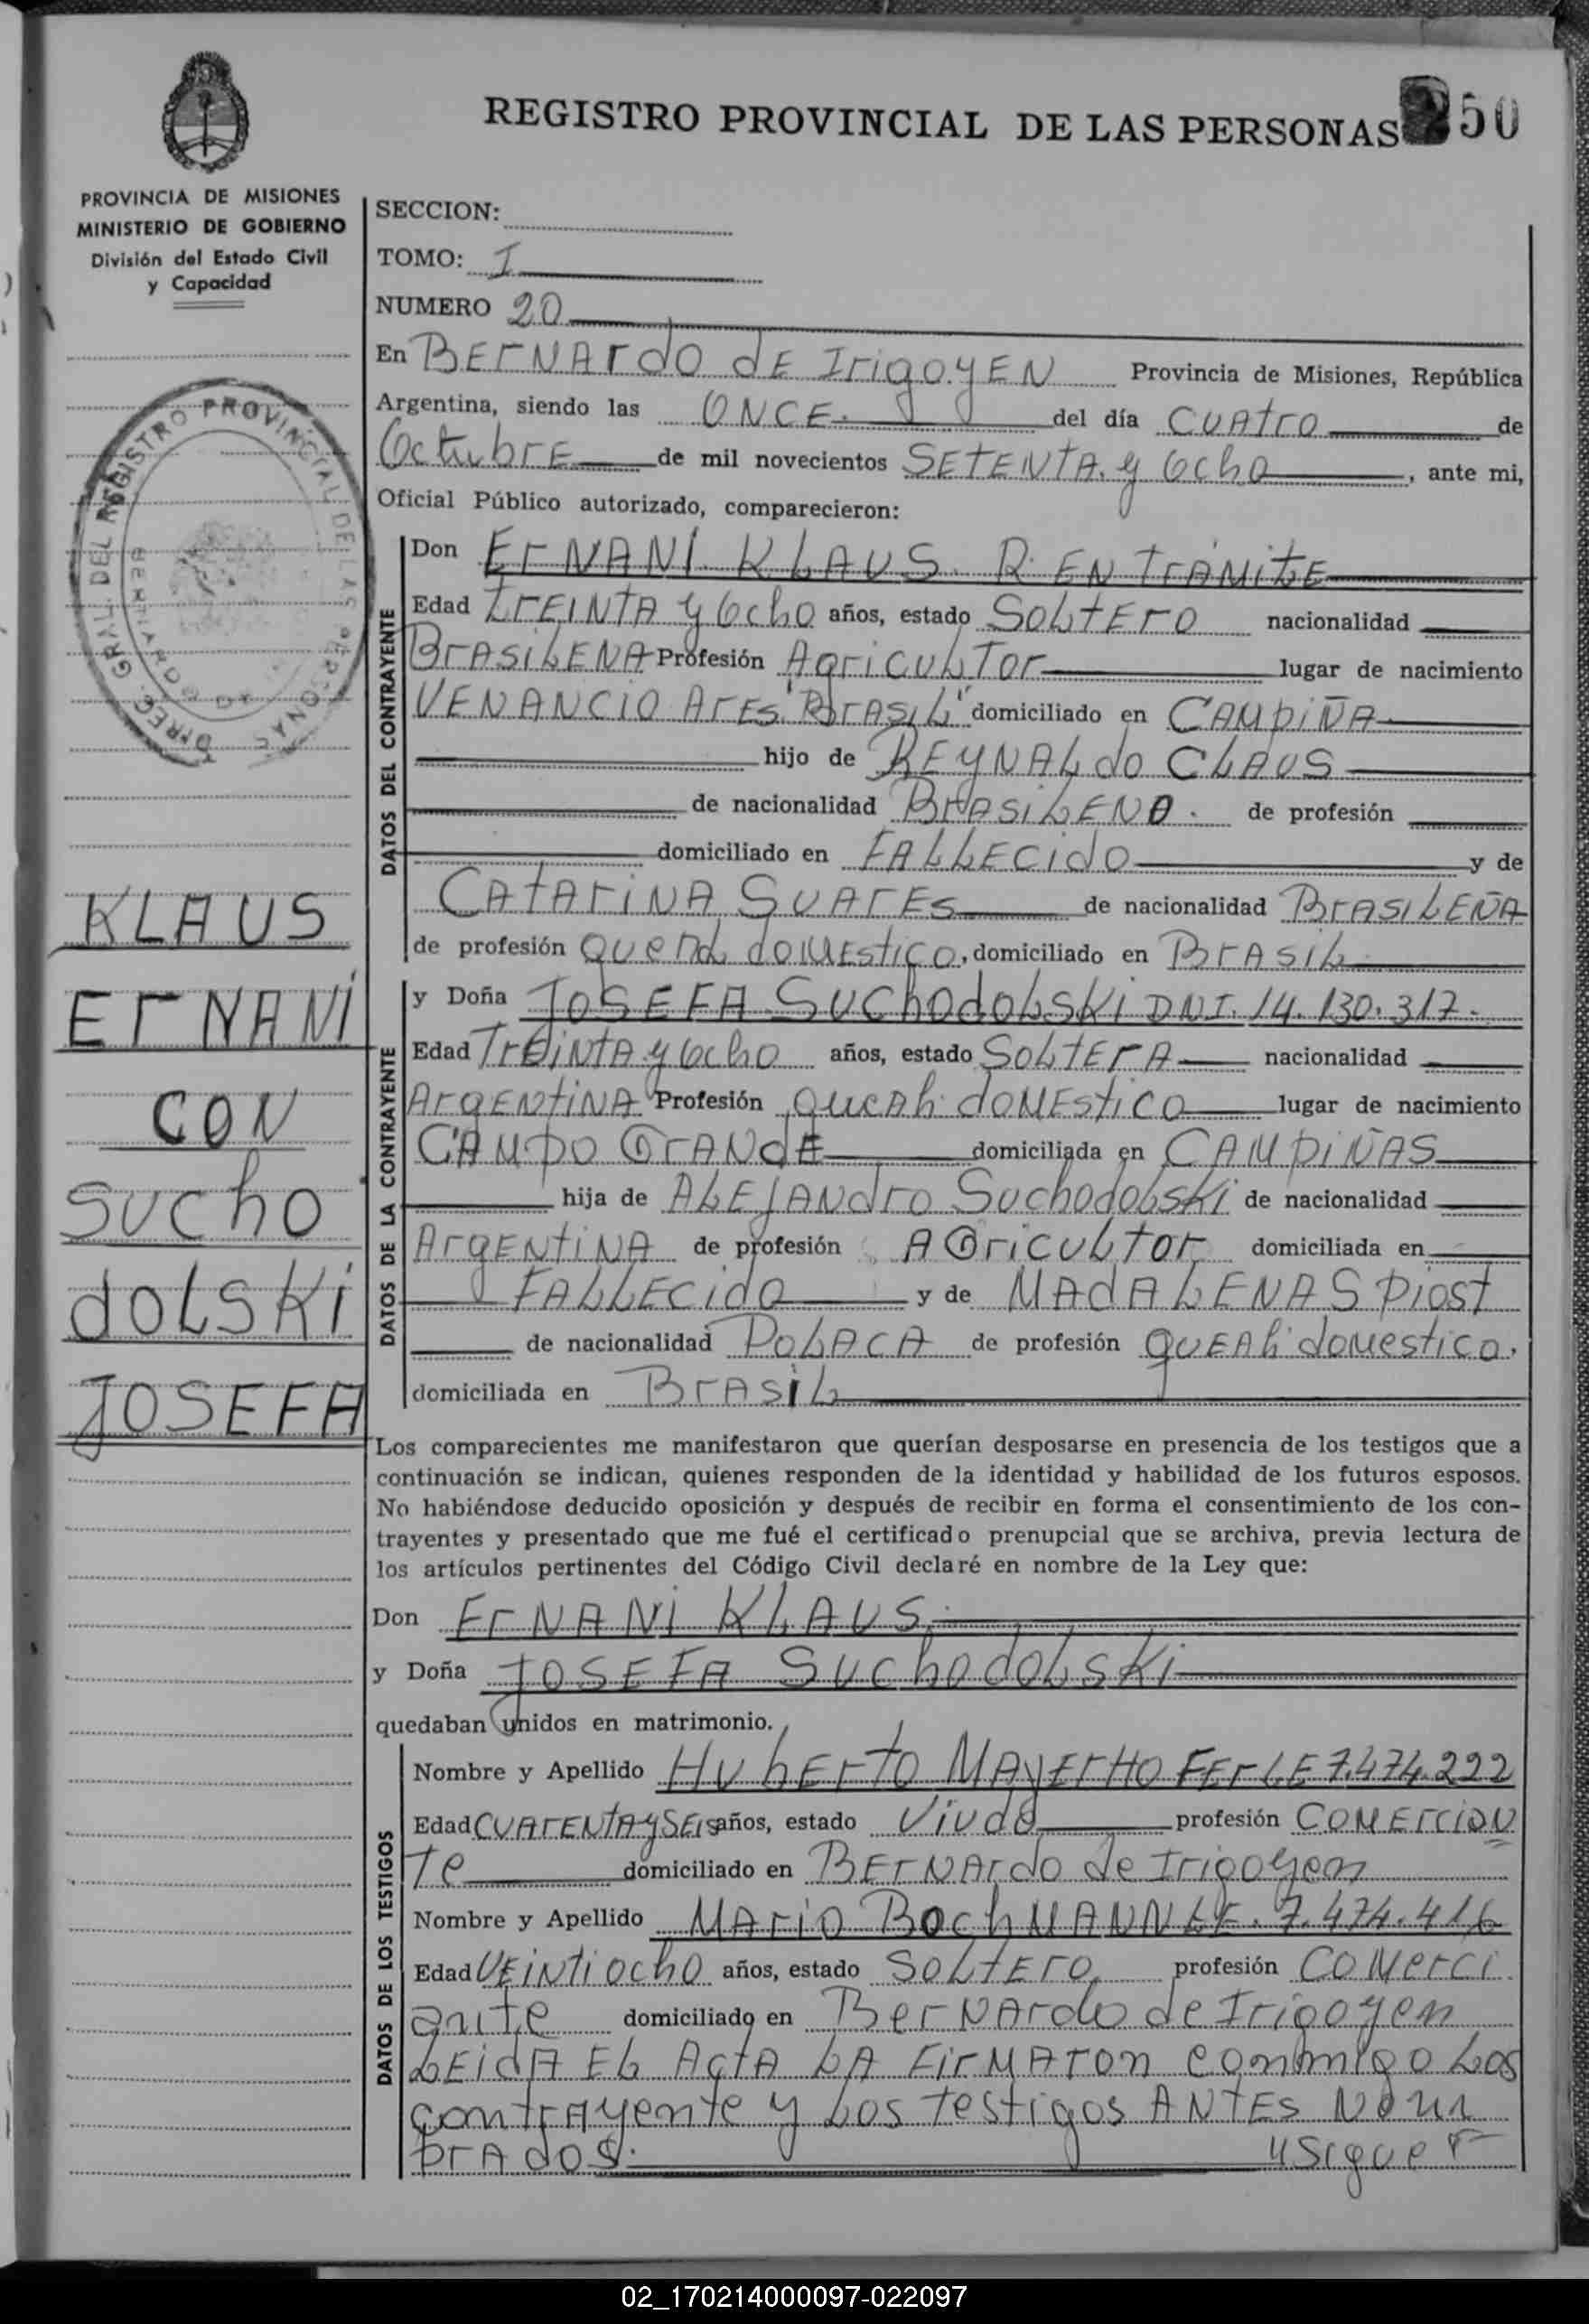 REGISTRO PROVINCIAL DE LAS PERSONAS 50
PROVINCIA DE MISIONES
MINISTERIO DE GOBIERNO
División del Estado Civil
y Capacidad
REGISTRO PROVINCIAL DE LAS PERSONAS
DIREC. GRAL DEL
BERNARDO DE
KLAUS
ErNANi
CON
SUcho
dOLSKi
JOSEFA
SECCION:
TOMO: I
NUMERO 20
En BErNArdo dE IrigoyEN Provincia de Misiones, República
Argentina, siendo las ONCE. del día CUAtrO de
OctubrE de mil novecientos SETENTA y Ocho, ante mi,
Oficial Público autorizado, comparecieron:
DATOS DEL CONTRAYENTE
Don ErNANi KLAUS R. EN TrAMitE
Edad trEINTA y Ocho años, estado SOLtErO nacionalidad
BrASiLENA Profesión AgriCULTOr lugar de nacimiento
VENANCIO ArES "BrASIL" domiciliado en CAMpiÑA
hijo de REYNALdo CLAUS
de nacionalidad BrASiLENO. de profesión
domiciliado en FALLECidO y de
CAtAriNA SUArES de nacionalidad BrASILEÑA
de profesión QUEhA. dOMEstiCO, domiciliado en BrASIL
DATOS DE LA CONTRAYENTE
y Doña JOSEFA SUChOdOLSKi DNI. 14.130.317.
Edad TrEiNtA y Ocho años, estado SOLtErA nacionalidad
ArgENtiNA Profesión QUEAh. dOMEstiCO lugar de nacimiento
CAMpO GrANdE domiciliada en CAMpiÑAS
hija de ALEJANdrO SUchodoLSKi de nacionalidad
ArgENtiNA de profesión AGriCULtOr domiciliada en
FALLECido y de MAdALENA Spiost
de nacionalidad POLACA de profesión QUEAh. domestico.
domiciliada en BrASiL
Los comparecientes me manifestaron que querían desposarse en presencia de los testigos que a
continuación se indican, quienes responden de la identidad y habilidad de los futuros esposos.
No habiéndose deducido oposición y después de recibir en forma el consentimiento de los con-
trayentes y presentado que me fué el certificado prenupcial que se archiva, previa lectura de
los artículos pertinentes del Código Civil declaré en nombre de la Ley que:
Don ErNANi KLAUS.
y Doña JOSEFA SUchOdOLSKi
quedaban unidos en matrimonio.
DATOS DE LOS TESTIGOS
Nombre y Apellido HUbErtO MAYErHOFEr LE 7.474.222
Edad CUArENtA y SEis años, estado Viudo profesión COMErCiAN
te domiciliado en BErNArdo de Irigoyen
Nombre y Apellido MAriO BOchMANN LE. 7.474.416
Edad VEiNtiocho años, estado SOLtErO, profesión COMerci
ante domiciliado en BerNArdo de Irigoyen
LEidA EL ActA LA FirMAron conmigo Los
contrAyente y Los testigos ANtEs Nom
brAdOS. "Sigue"
02_170214000097-022097